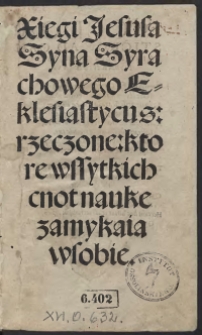 Xiegi Jesusa
Syna Syra
chowego E-
klesiastycus:
rzeczone: kto
re wssytkich
cnot nauke
zamykaia
wsobie.
6.402
XVI.O.632.